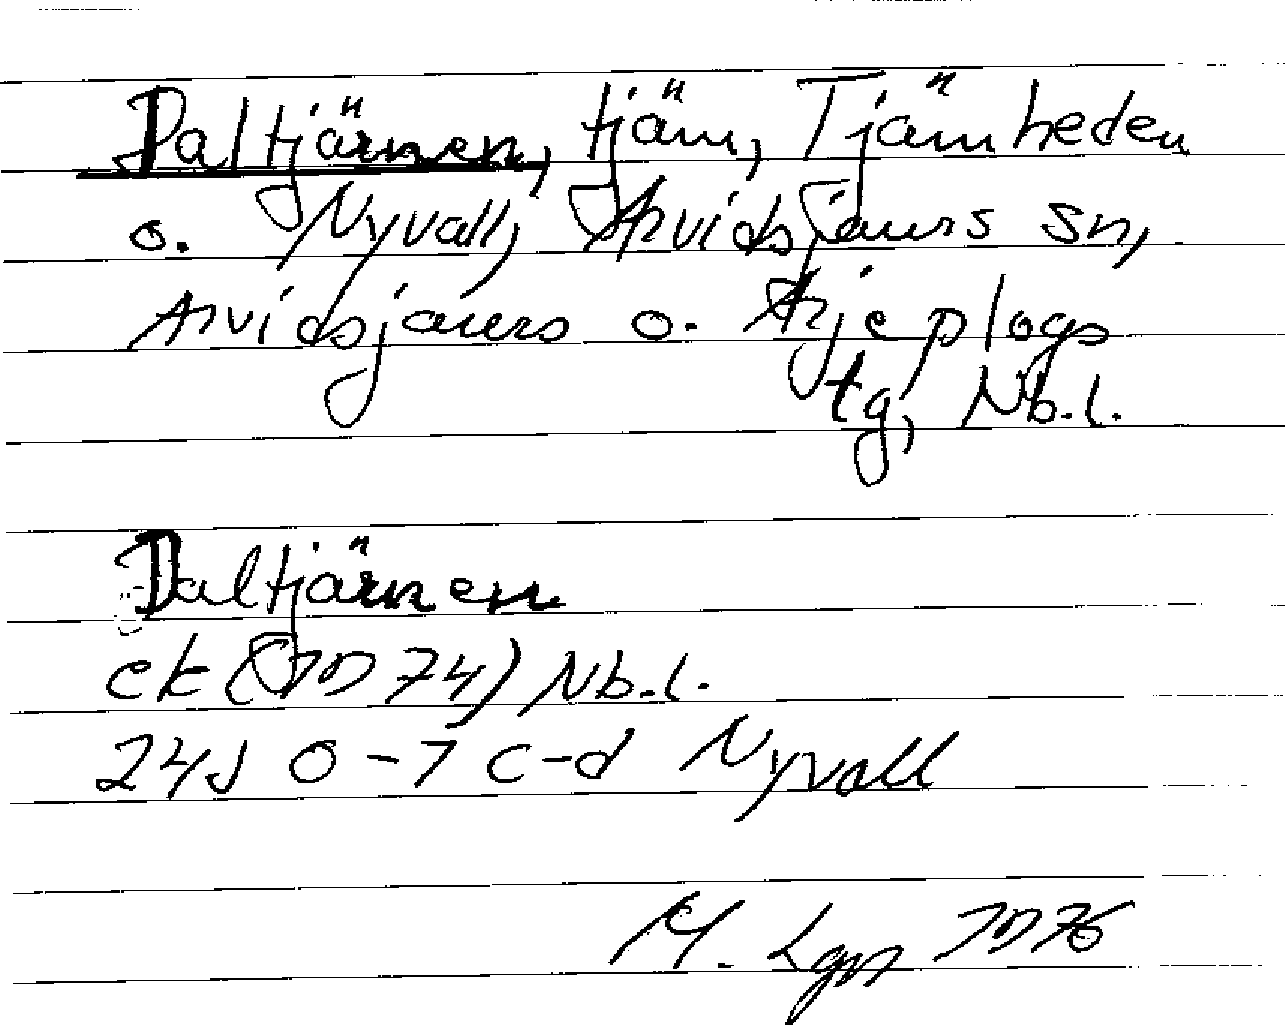 Daltjärnen, tjärn, Tjärnheden
o. Nyvall, Arvidsjaurs sn,
Arvidsjaurs o. Arjeplogs
tg, Nb.l.
Daltjärnen
ek (1974) Nb.l.
24J 0-7 c-d Nyvall
M. Lgn 1976